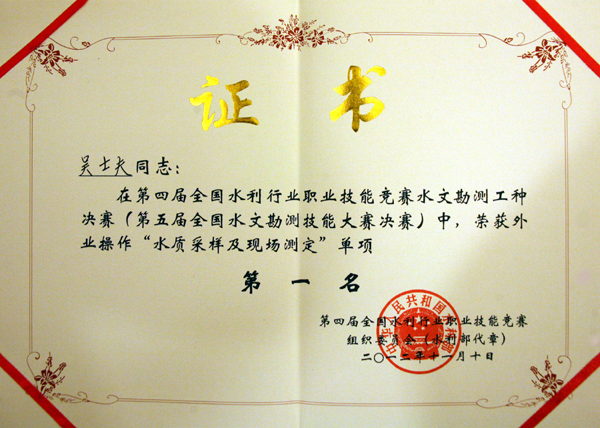 证书
吴士夫同志：
在第四届全国水利行业职业技能竞赛水文勘测工种
决赛（第五届全国水文勘测技能大赛决赛）中，荣获外
业操作“水质采样及现场测定”单项
第一名
第四届全国水利行业职业技能竞赛
组织委员会（水利部代章）
二〇一二年十一月十日
中华人民共和国水利部